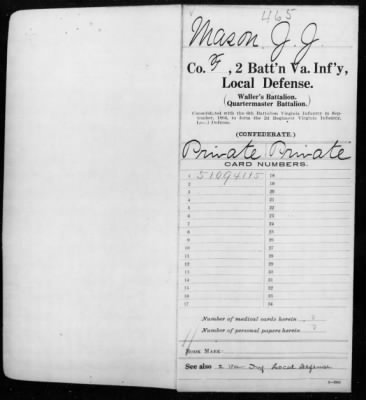 465
Mason, J. J.
Co. F, 2 Batt'n Va. Inf'y,
Local Defense.
Waller's Battalion.
(Quartermaster Battalion.)
Consolidated with the 6th Battalion Virginia Infantry in Sep-
tember, 1864, to form the 2d Regiment Virginia Infantry,
Local Defense.
(CONFEDERATE.)
Private Private
CARD NUMBERS.
1 51094115 18
2 19
3 20
4 21
5 22
6 23
7 24
8 25
9 26
10 27
11 28
12 29
13 30
14 31
15 32
16 33
17 34
Number of medical cards herein 0
Number of personal papers herein 0
BOOK MARK:
See also 2 Va. Inf Local Defense